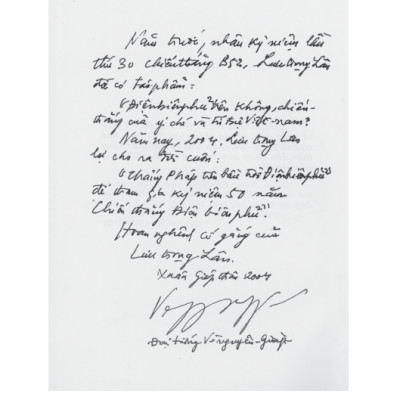 Năm trước, nhân kỷ niệm lần
thứ 30 chiến thắng B52, Lưu trọng Lân
đã có tác phẩm:
"Điện biên phủ trên không, chiến
thắng của ý chí và trí tuệ Việt-nam"
Năm nay, 2004, Lưu trọng Lân
lại cho ra mắt cuốn:
"Pháp trên bầu trời Điện biên phủ"
để tham gia kỷ niệm 50 năm
"Chiến thắng Điện biên phủ".
Hoan nghênh cố gắng của
Lưu trọng Lân.
Xuân giáp thân 2004
Đại tướng Võ nguyên-Giáp